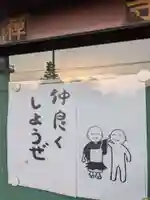 仲良く
しようぜ